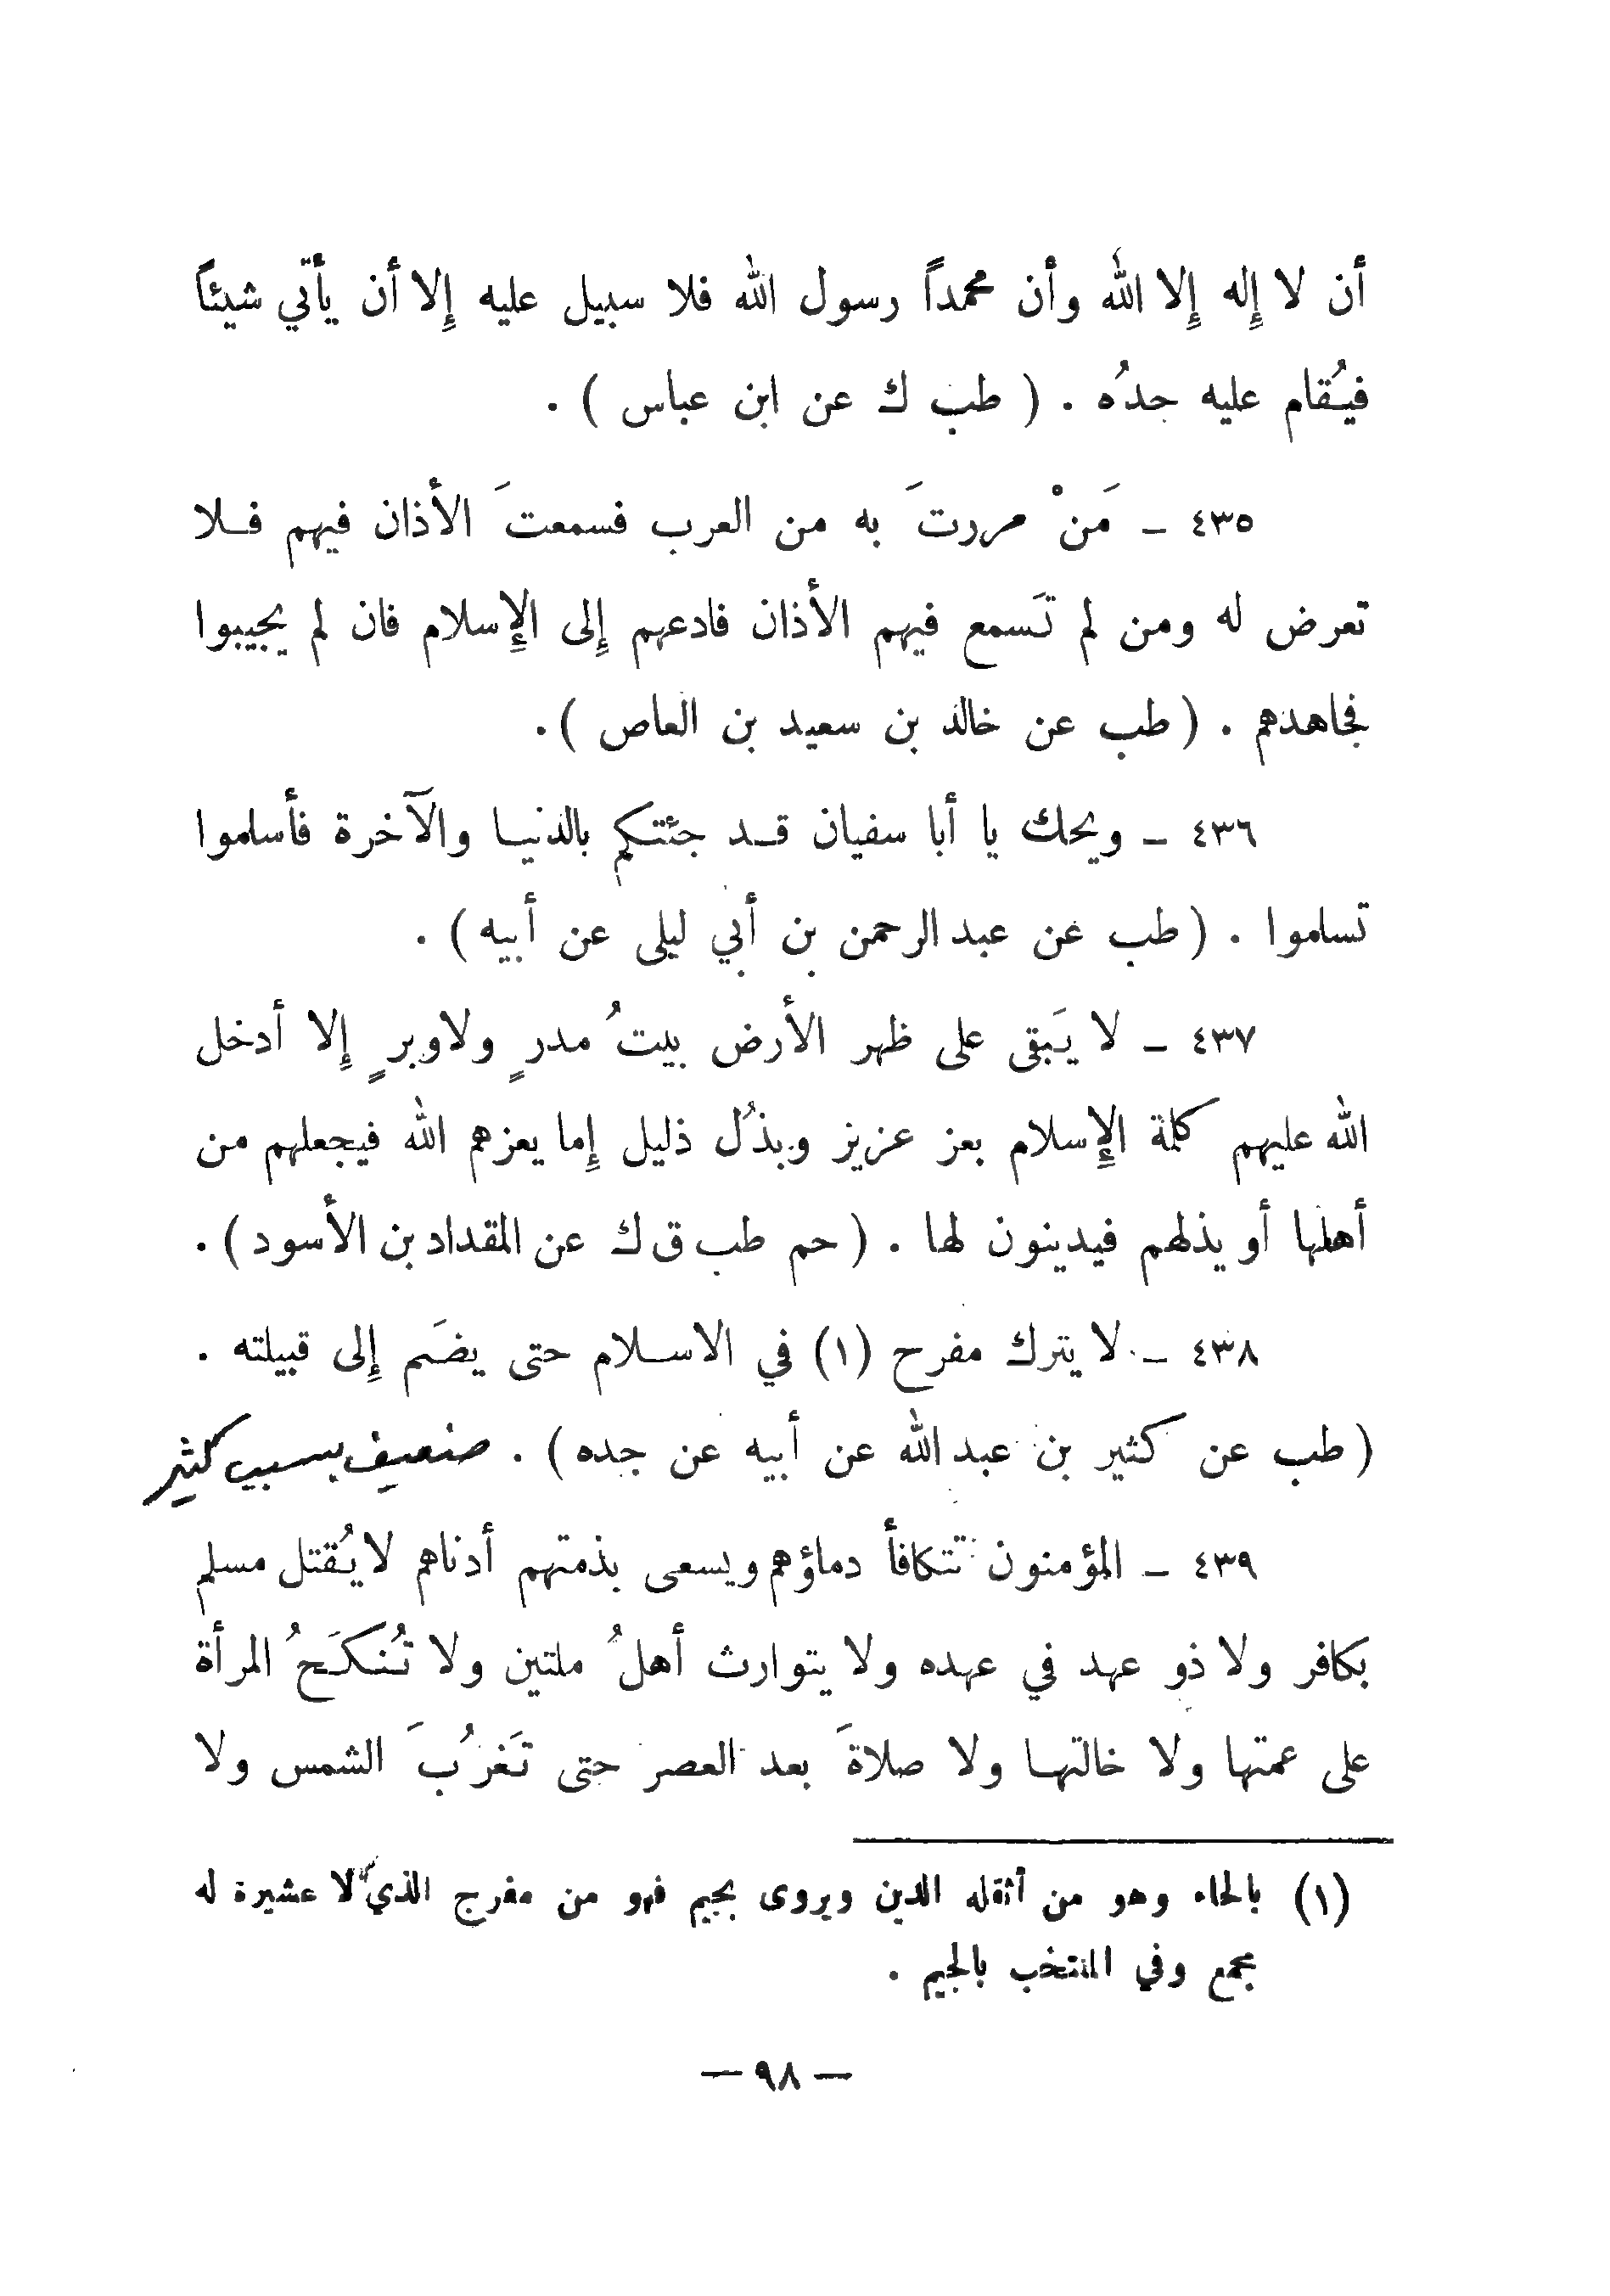 أن لا إله إلا الله وأن محمداً رسول الله فلا سبيل عليه إلا أن يأتي شيئاً
فيُقام عليه حدُه . ( طب ك عن ابن عباس ) .
٤٣٥ ـ مَنْ مررتَ به من العرب فسمعتَ الأذان فيهم فـلا
تعرض له ومن لم تَسمع فيهم الأذان فادعهم إلى الإسلام فان لم يجيبوا
فجاهدهم . ( طب عن خالد بن سعيد بن العاص ) .
٤٣٦ ـ ويحك يا أبا سفيان قـد جئتكم بالدنيـا والآخرة فأسلموا
تسلموا . ( طب عن عبد الرحمن بن أبي ليلى عن أبيه ) .
٤٣٧ ـ لا يَبقى على ظهر الأرض بيتُ مدرٍ ولا وبرٍ إلا أدخل
الله عليهم كلمة الإسلام بعز عزيز وبذُل ذليل إما يعزهم الله فيجعلهم من
أهلها أو يذلهم فيدينون لها . ( حم طب ق ك عن المقداد بن الأسود ) .
٤٣٨ ـ لا يترك مفرح (١) في الاسـلام حتى يضَم إلى قبيلته .
( طب عن كثير بن عبد الله عن أبيه عن جده ) . ضعيف بسبب كثير
٤٣٩ ـ المؤمنون تتكافأ دماؤهم ويسعى بذمتهم أدناهم لا يُقتل مسلم
بكافر ولا ذو عهد في عهده ولا يتوارث أهلُ ملتين ولا تُنكَحُ المرأة
على عمتها ولا خالتهـا ولا صلاةَ بعد العصر حتى تَغرُبَ الشمس ولا
(١) بالحاء وهو من أثقله الدين ويروى بجيم فهو من مفرج الذي لا عشيرة له
مجمع وفي المنتخب بالجيم .
— ٩٨ —